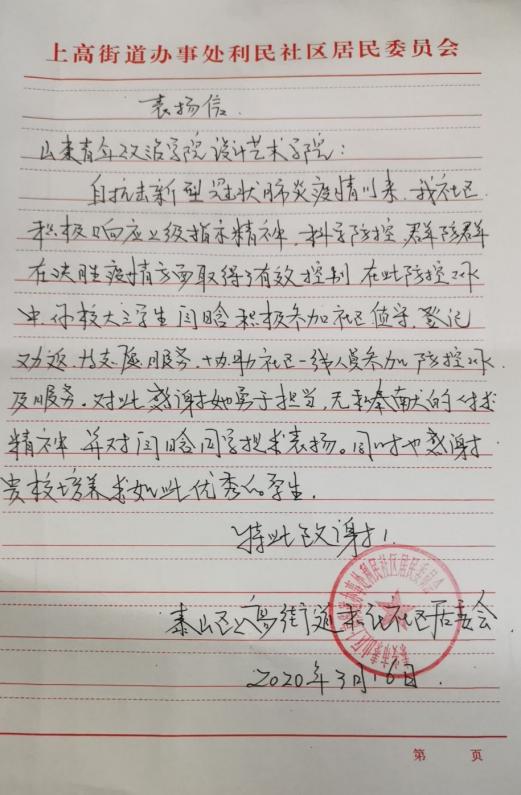 上高街道办事处利民社区居民委员会
表扬信.
山东青年政治学院设计艺术学院:
自抗击新型冠状肺炎疫情以来,我社区
积极响应上级指示精神,科学防控,群防群
在决胜疫情方面取得了有效控制 在此防控工作
中,你校大三学生闫晗积极参加社区值守,登记
劝返,志愿服务,协助社区一线人员参加防控工作
及服务,对此感谢她勇于担当,无私奉献的
精神 并对闫晗同学提出表扬。同时也感谢
贵校培养出如此优秀的学生.
特此致谢!
泰山区上高街道利民社区居委会
2020年3月16日.
第 页